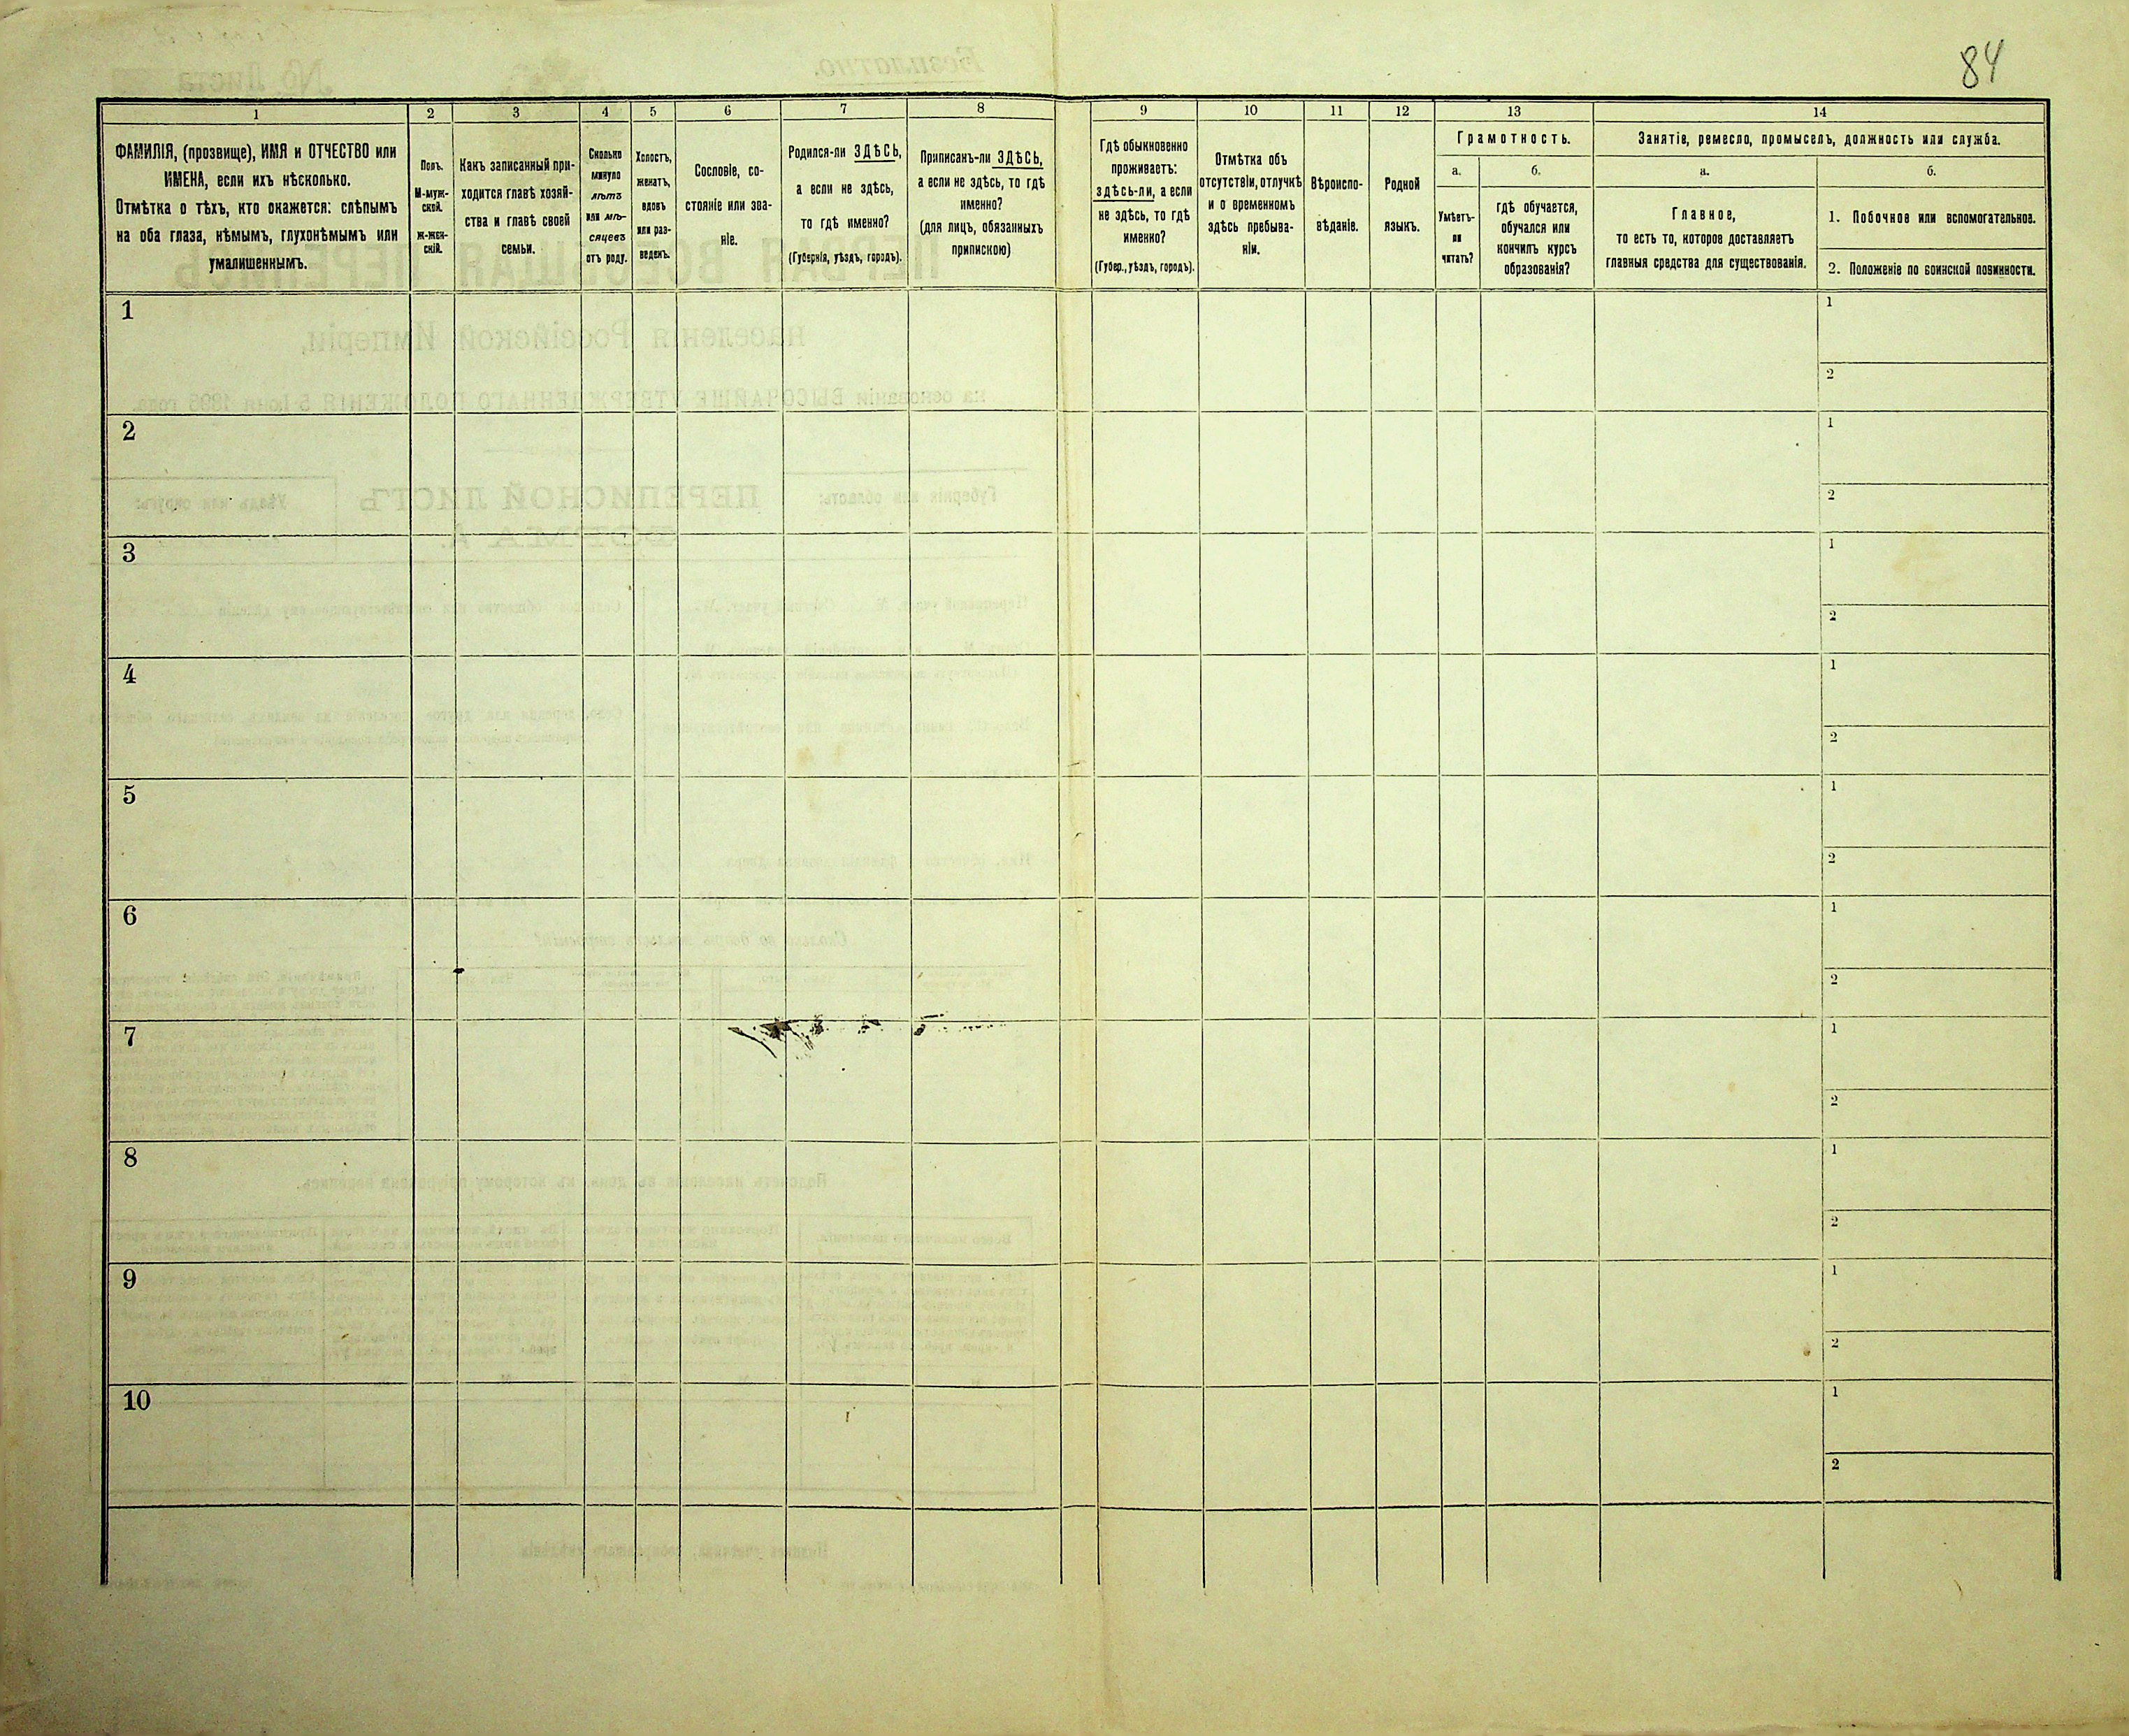 84
1 2 3 4 5 6 7 8 9 10 11 12 13 14
ФАМИЛІЯ, (прозвище), ИМЯ и ОТЧЕСТВО или
ИМЕНА, если ихъ нѣсколько.
Отмѣтка о тѣхъ, кто окажется: слѣпымъ
на оба глаза, нѣмымъ, глухонѣмымъ или
умалишеннымъ.
Полъ.
М-муж-
ской.
Ж-жен-
скій.
Какъ записанный при-
ходится главѣ хозяй-
ства и главѣ своей
семьи.
Сколько
минуло
лѣтъ
или мѣ-
сяцевъ
отъ роду.
Холостъ,
женатъ,
вдовъ
или раз-
веденъ.
Сословіе, со-
стояніе или зва-
ніе.
Родился-ли ЗДѢСЬ,
а если не здѣсь,
то гдѣ именно?
(Губернія, уѣздъ, городъ).
Приписанъ-ли ЗДѢСЬ,
а если не здѣсь, то гдѣ
именно?
(для лицъ, обязанныхъ
припискою)
Гдѣ обыкновенно
проживаетъ:
здѣсь-ли, а если
не здѣсь, то гдѣ
именно?
(Губер., уѣздъ, городъ).
Отмѣтка объ
отсутствіи, отлучкѣ
и о временномъ
здѣсь пребыва-
ніи.
Вѣроиспо-
вѣданіе.
Родной
языкъ.
Грамотность.
а.
Умѣетъ-
ли
читать?
б.
гдѣ обучается,
обучался или
кончилъ курсъ
образованія?
Занятіе, ремесло, промыселъ, должность или служба.
а.
Главное,
то есть то, которое доставляетъ
главныя средства для существованія.
б.
1. Побочное или вспомогательное.
2. Положеніе по воинской повинности.
1 1
2
2 1
2
3 1
2
4 1
2
5 1
2
6 1
2
7 1
2
8 1
2
9 1
2
10 1
2